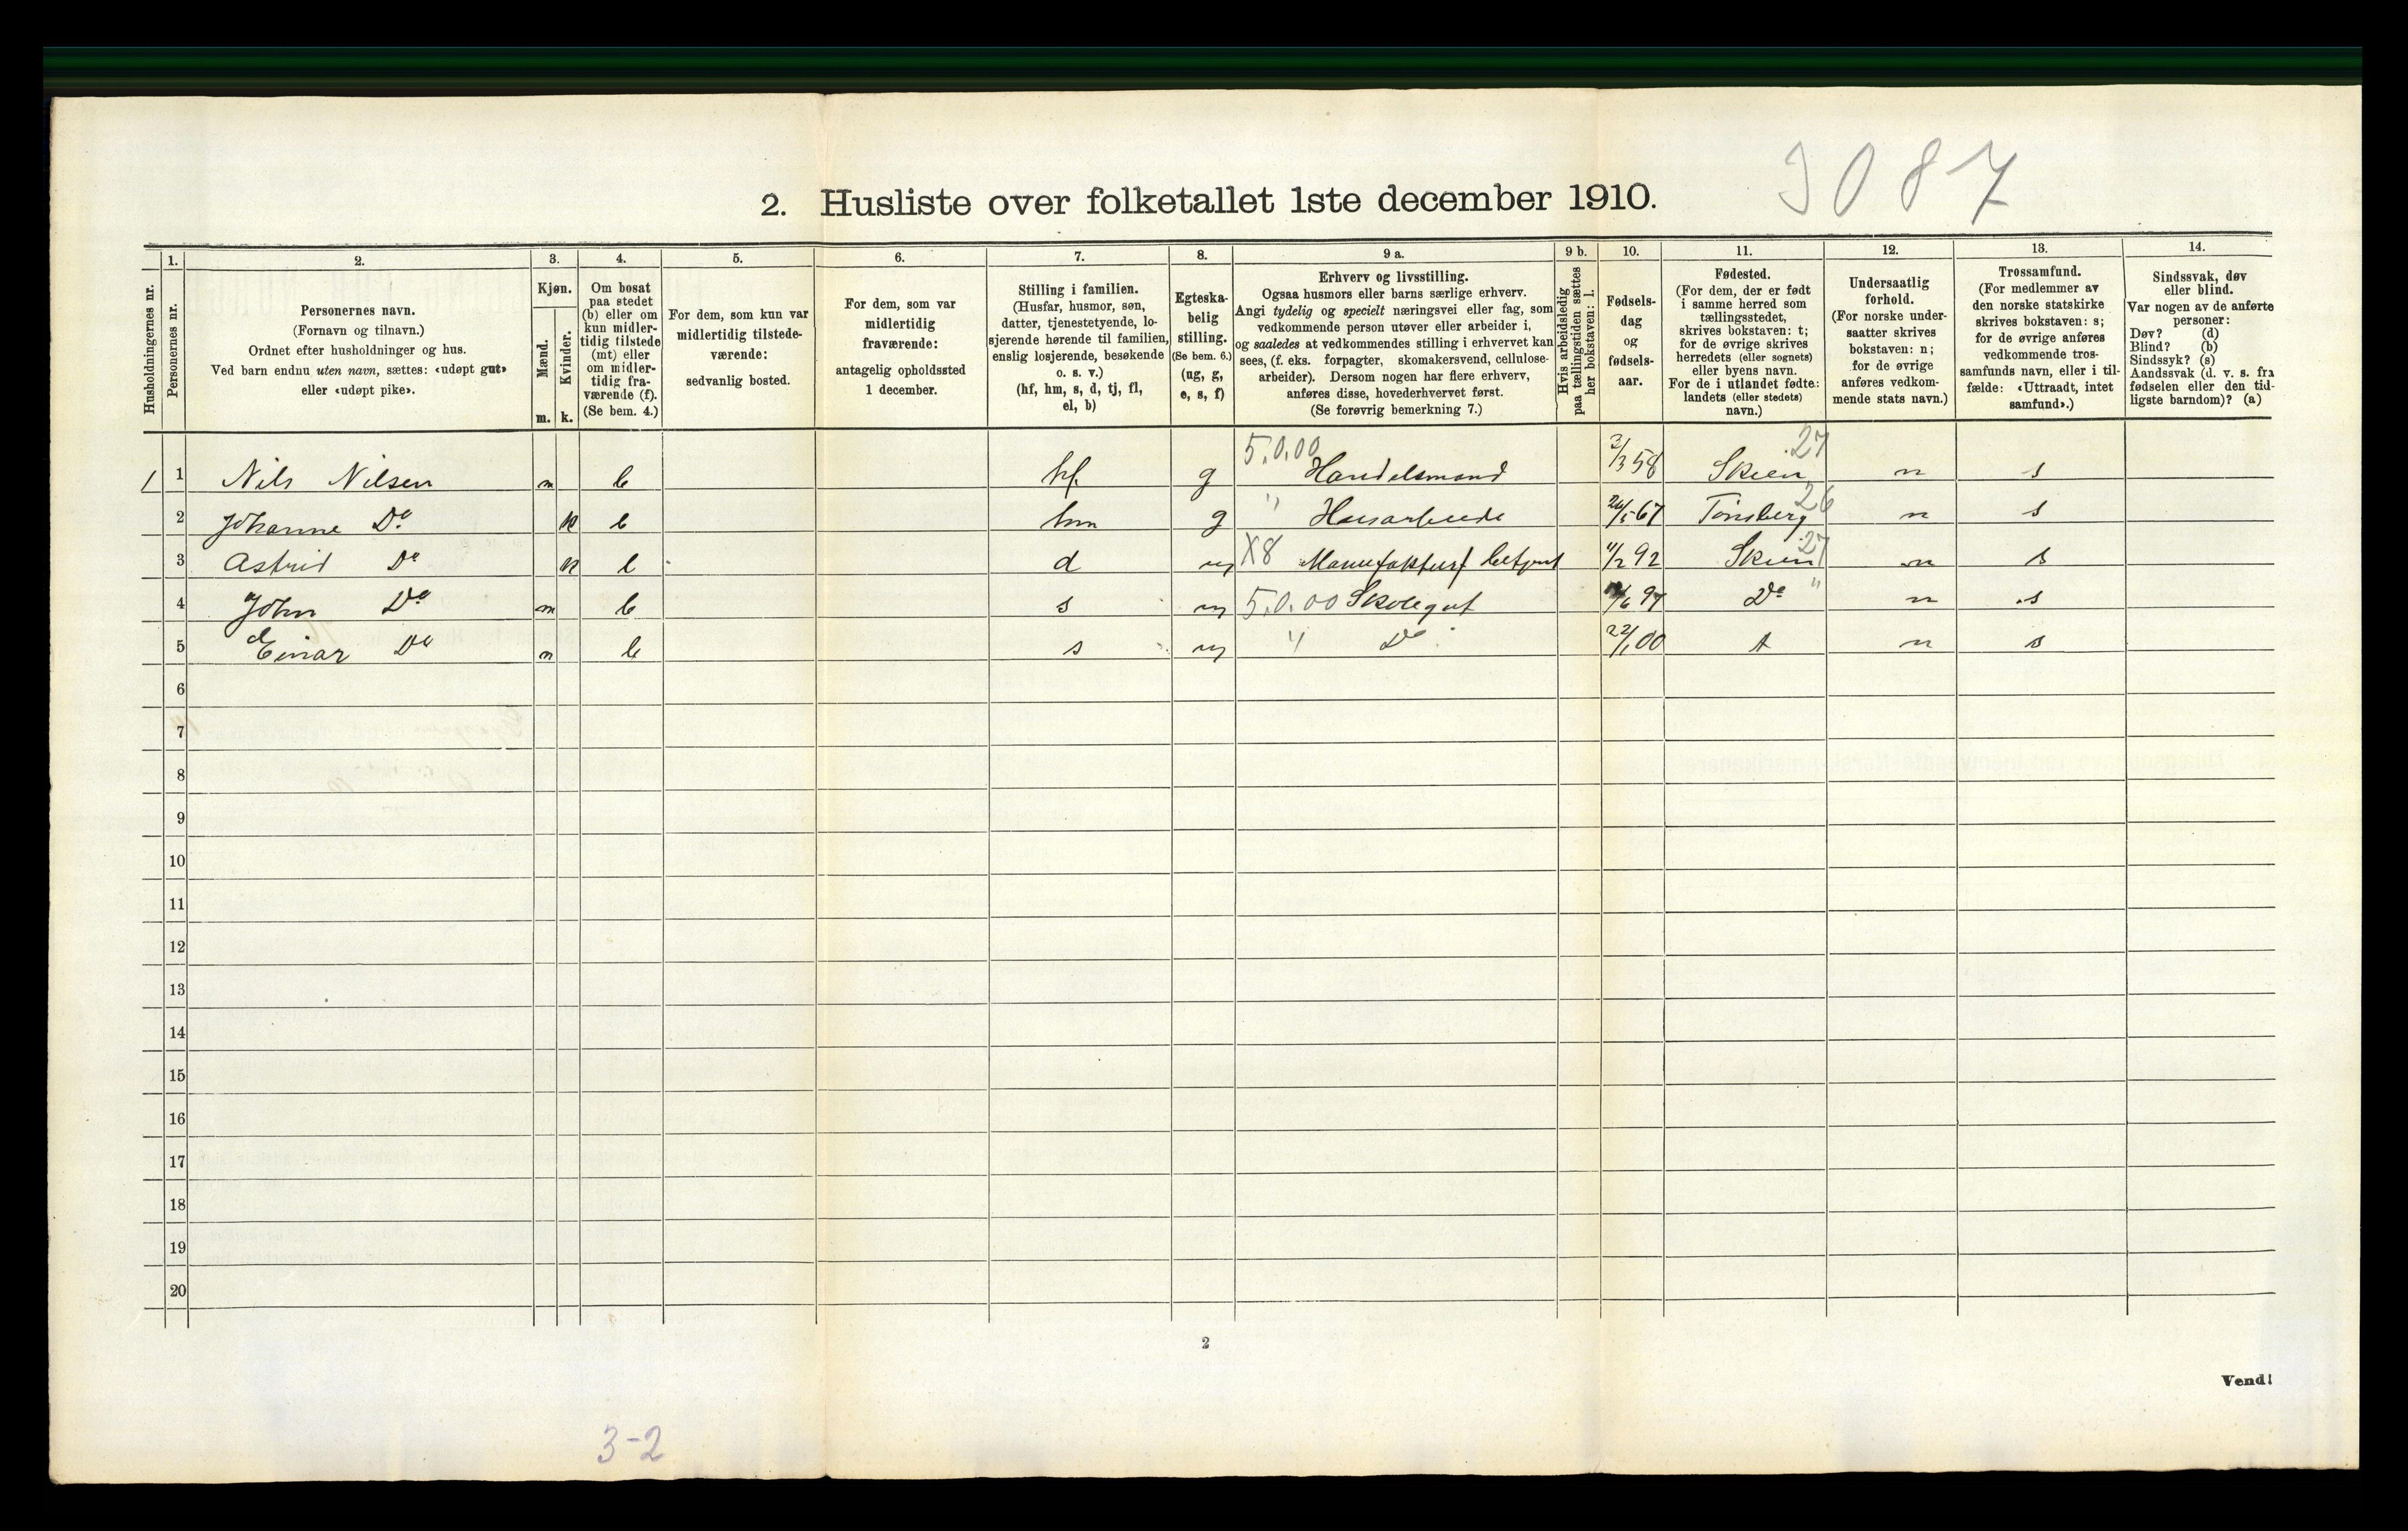 3087
2. Husliste over folketallet 1ste december 1910.
Husholdningernes nr.
1.
Personernes nr.
2.
Personernes navn.
(Fornavn og tilnavn.)
Ordnet efter husholdninger og hus.
Ved barn endnu uten navn, sættes: «udøpt gut»
eller «udøpt pike».
3.
Kjøn.
Mænd.
Kvinder.
m. k.
4.
Om bosat
paa stedet
(b) eller om
kun midler-
tidig tilstede
(mt) eller
om midler-
tidig fra-
værende (f).
(Se bem. 4.)
5.
For dem, som kun var
midlertidig tilstede-
værende:
sedvanlig bosted.
6.
For dem, som var
midlertidig
fraværende:
antagelig opholdssted
1 december.
7.
Stilling i familien.
(Husfar, husmor, søn,
datter, tjenestetyende, lo-
sjerende hørende til familien,
enslig losjerende, besøkende
o. s. v.)
(hf, hm, s, d, tj, fl,
el, b)
8.
Egteska-
belig
stilling.
(Se bem. 6.)
(ug, g,
e, s, f)
9 a.
Erhverv og livsstilling.
Ogsaa husmors eller barns særlige erhverv.
Angi tydelig og specielt næringsvei eller fag, som
vedkommende person utøver eller arbeider i,
og saaledes at vedkommendes stilling i erhvervet kan
sees, (f. eks. forpagter, skomakersvend, cellulose-
arbeider). Dersom nogen har flere erhverv,
anføres disse, hovederhvervet først.
(Se forøvrig bemerkning 7.)
9 b.
Hvis arbeidsledig
paa tællingstiden sættes
her bokstaven: l.
10.
Fødsels-
dag
og
fødsels-
aar.
11.
Fødested.
(For dem, der er født
i samme herred som
tællingsstedet,
skrives bokstaven: t;
for de øvrige skrives
herredets (eller sognets)
eller byens navn.
For de i utlandet fødte:
landets (eller stedets)
navn.)
12.
Undersaatlig
forhold.
(For norske under-
saatter skrives
bokstaven: n;
for de øvrige
anføres vedkom-
mende stats navn.)
13.
Trossamfund.
(For medlemmer av
den norske statskirke
skrives bokstaven: s;
for de øvrige anføres
vedkommende tros-
samfunds navn, eller i til-
fælde: «Uttraadt, intet
samfund».)
14.
Sindssvak, døv
eller blind.
Var nogen av de anførte
personer:
Døv? (d)
Blind? (b)
Sindssyk? (s)
Aandssvak (d. v. s. fra
fødselen eller den tid-
ligste barndom)? (a)
1 1 Nils Nilsen m b hf g 5.0.00 Handelsmand 3/3 58 Skien 27 n s
2 Johanne Do k b hm g " Husarbeide 26/5 67 Tønsberg 26 n s
3 Astrid Do k b d ug X8 Manufaktur betjent 11/2 92 Skien 27 n s
4 John Do m b s ug 5.0.00 Skolegut /6 97 Do " n s
5 Einar Do m b s ug " Do 22/1 00 t n s
6
7
8
9
10
11
12
13
14
15
16
17
18
19
20
2
Vend!
3-2